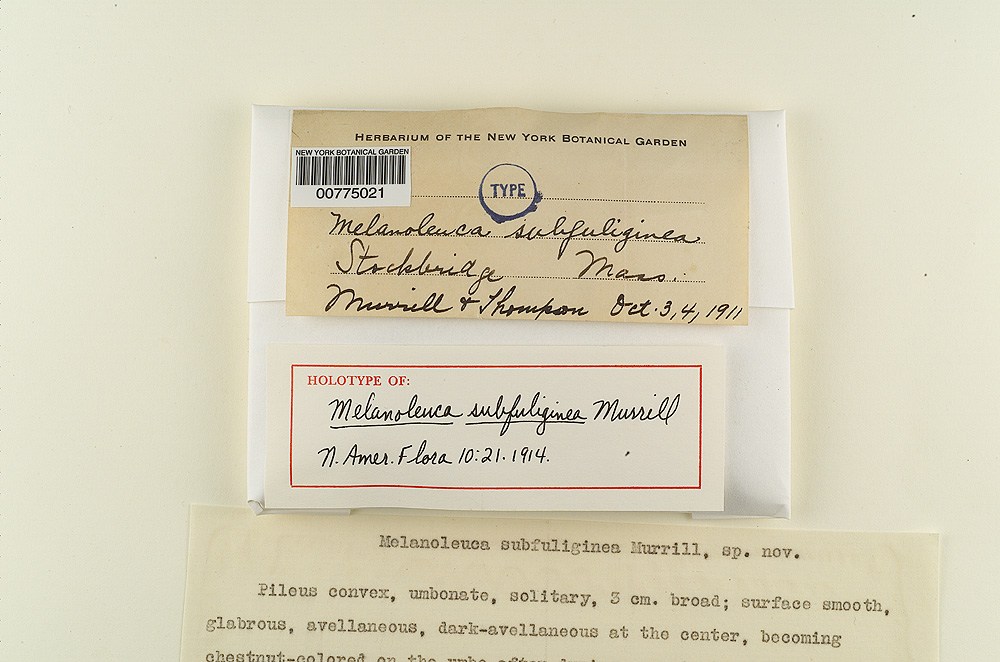 HERBARIUM OF THE NEW YORK BOTANICAL GARDEN
NEW YORK BOTANICAL GARDEN
00775021
TYPE
Melanoleuca subfuliginea
Stockbridge Mass.
Murrill & Thompson Oct. 3, 4, 1911
HOLOTYPE OF:
Melanoleuca subfuliginea Murrill
N. Amer. Flora 10:21. 1914.
Melanoleuca subfuliginea Murrill, sp. nov.
Pileus convex, umbonate, solitary, 3 cm. broad; surface smooth,
glabrous, avellaneous, dark-avellaneous at the center, becoming
chestnut-colored on the umbo after